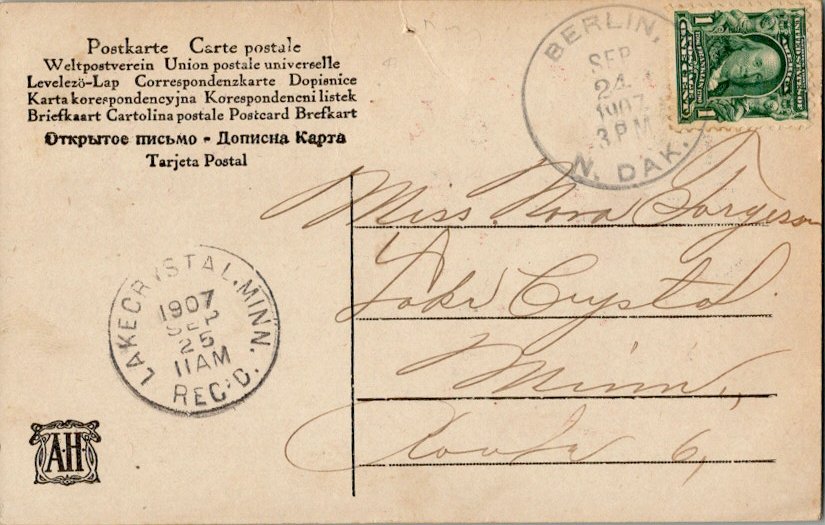 Postkarte Carte postale
Weltpostverein Union postale universelle
Levelezö-Lap Correspondenzkarte Dopisnice
Karta korespondencyjna Korespondencni listek
Briefkaart Cartolina postale Postcard Brefkart
Открытое письмо - Дописна Карта
Tarjeta Postal
BERLIN,
SEP
24
1907
3 PM
N. DAK.
1 1
Miss. Nora Torgeson
Lake Crystal
Minn,
Route 6,
LAKE CRYSTAL, MINN.
1907
SEP
25
11 AM
REC'D.
A·H